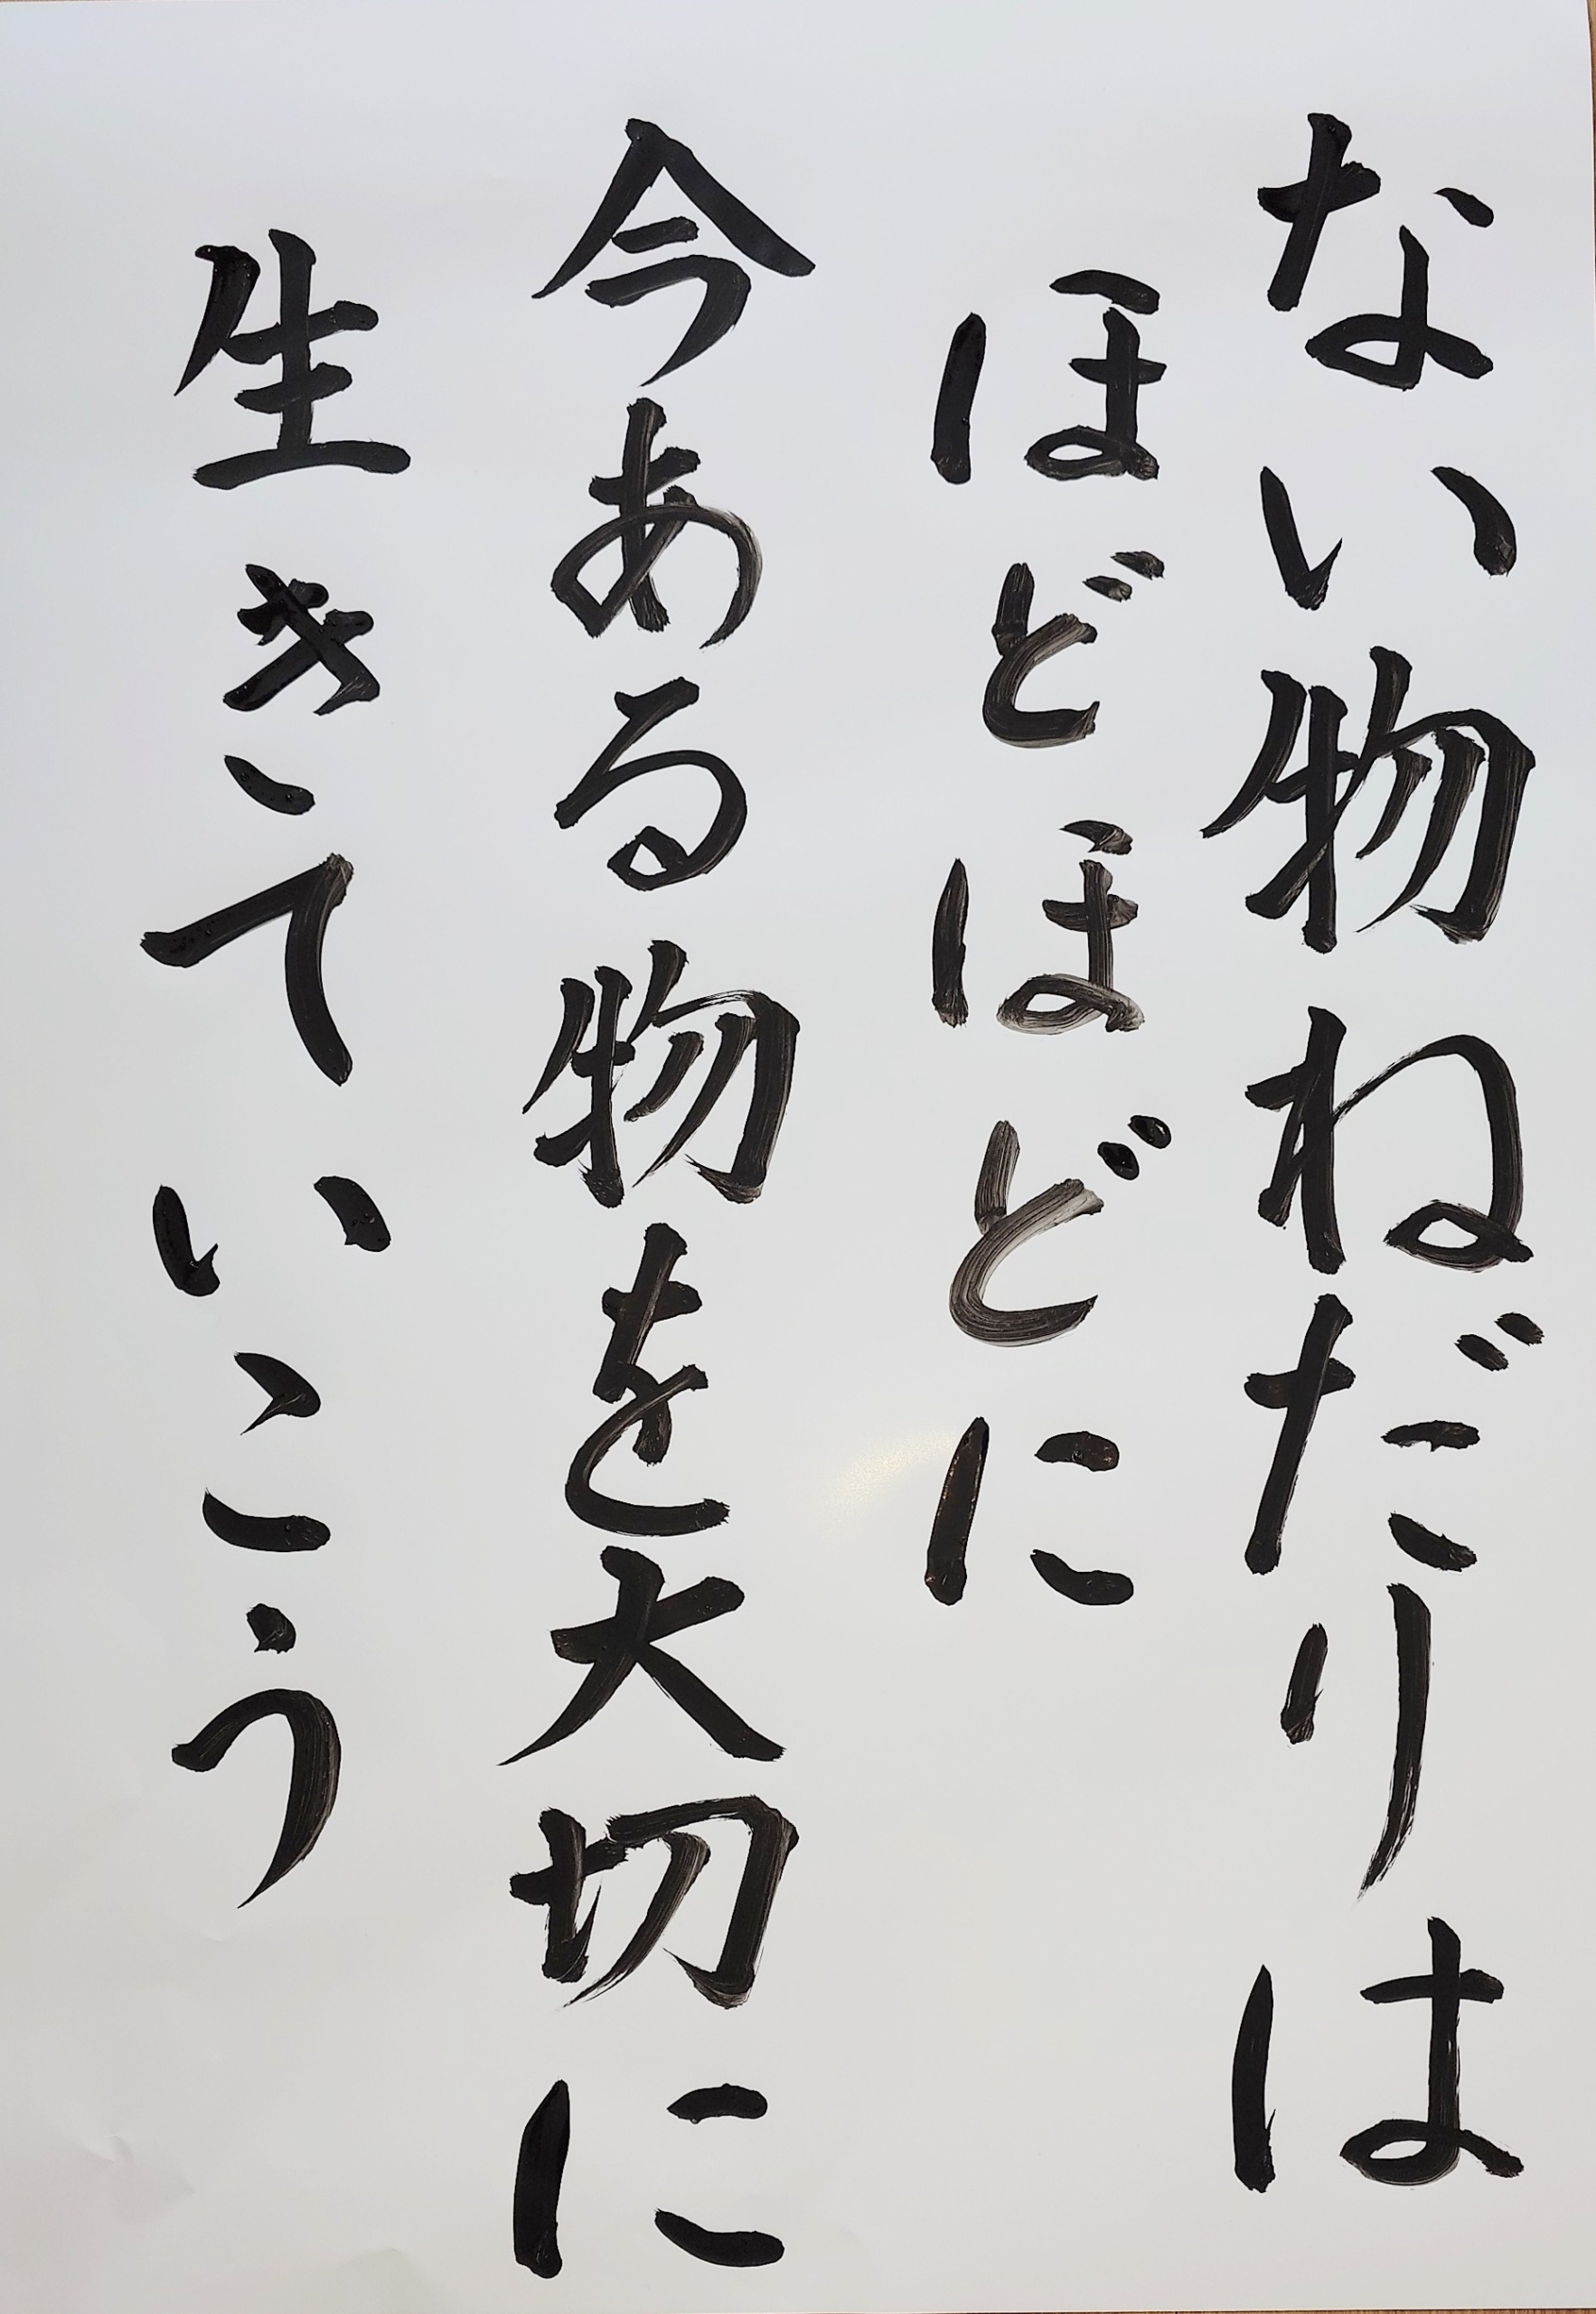 ない物ねだりは
ほどほどに
今ある物を大切に
生きていこう